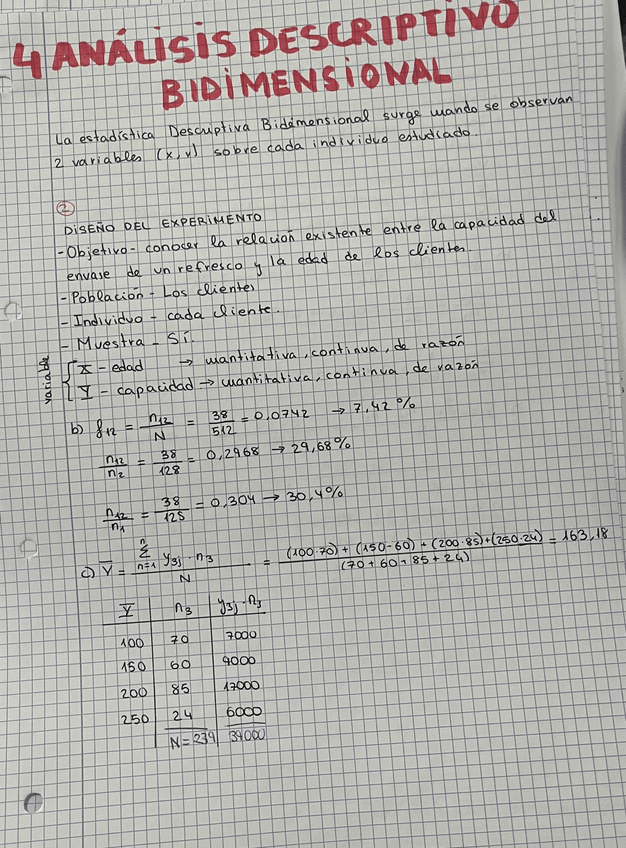 4 ANÁLISIS DESCRIPTIVO
BIDIMENSIONAL
La estadística Descriptiva Bidimensional surge cuando se observan
2 variables (x, y) sobre cada individuo estudiado.
2
DISEÑO DEL EXPERIMENTO
- Objetivo - conocer la relación existente entre la capacidad del
envase de un refresco y la edad de los clientes.
- Población - Los clientes
- Individuo - cada cliente.
- Muestra - Sí.
variable
X - edad → cuantitativa, continua, de razón
Y - capacidad → cuantitativa, continua, de razón
b) f12 = n12/N = 38/512 = 0,0742 → 7,42%
n12/n2 = 38/128 = 0,2968 → 29,68%
n12/n1 = 38/125 = 0,304 → 30,4%
c) Y̅ = Σ n n=1 y3j · n3 / N = (100·70) + (150·60) + (200·85) + (250·24) / (70 + 60 + 85 + 24) = 163,18
Y n3 y3j · n3
100 70 7000
150 60 9000
200 85 17000
250 24 6000
N = 239 39000